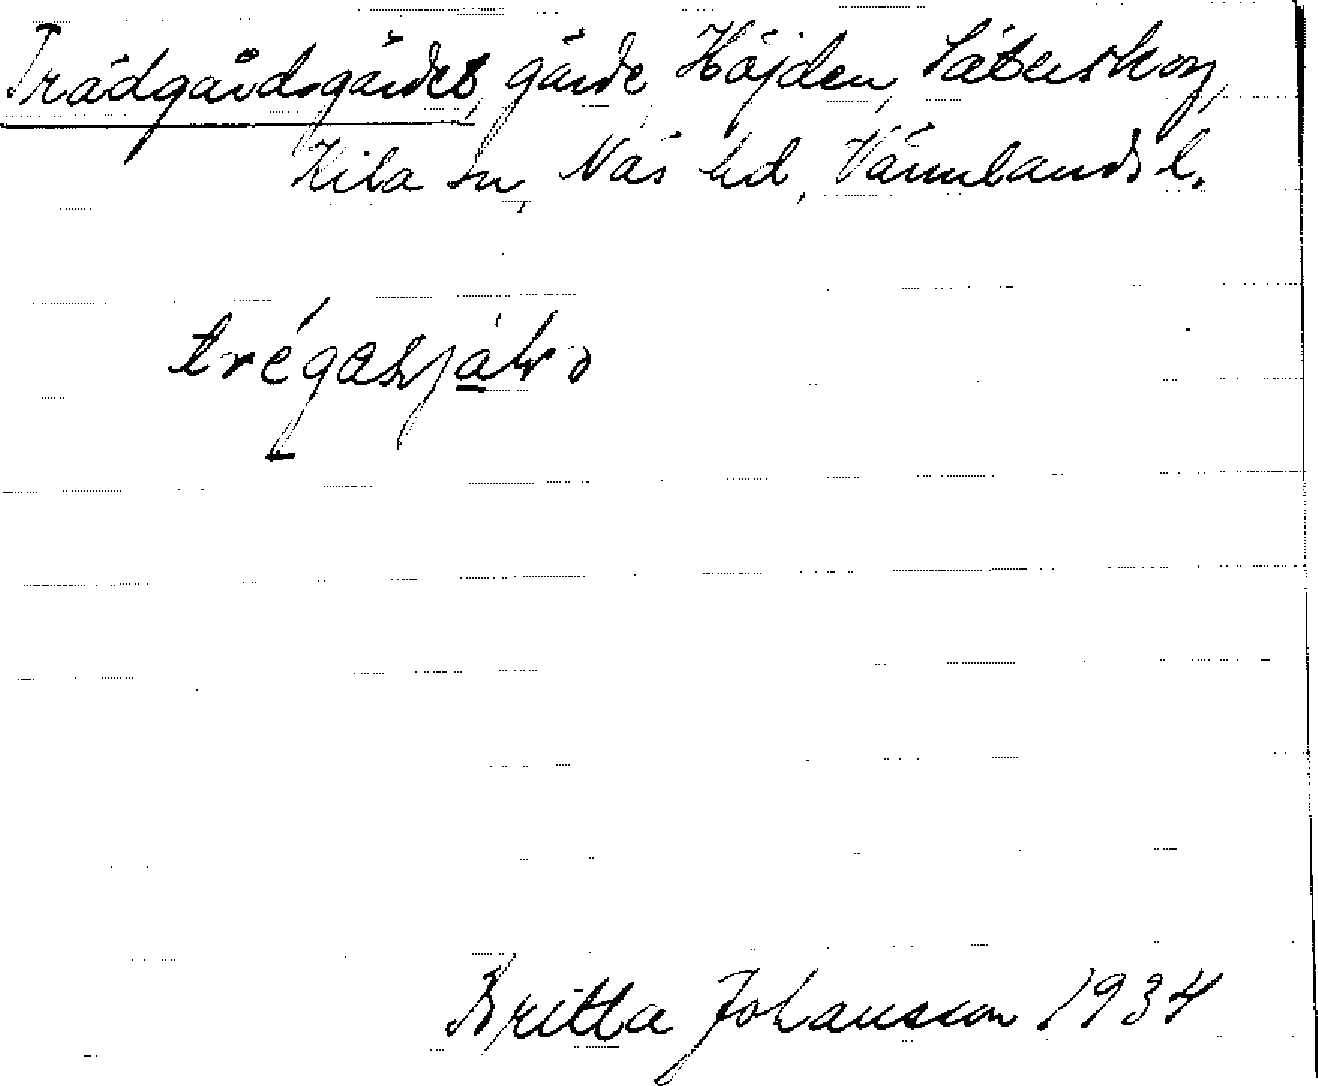 Trädgårdsgärdet, gärde, Höjden, Säterskog,
Kila sn, Näs hd, Värmlands l.
Britta Johansson 1934